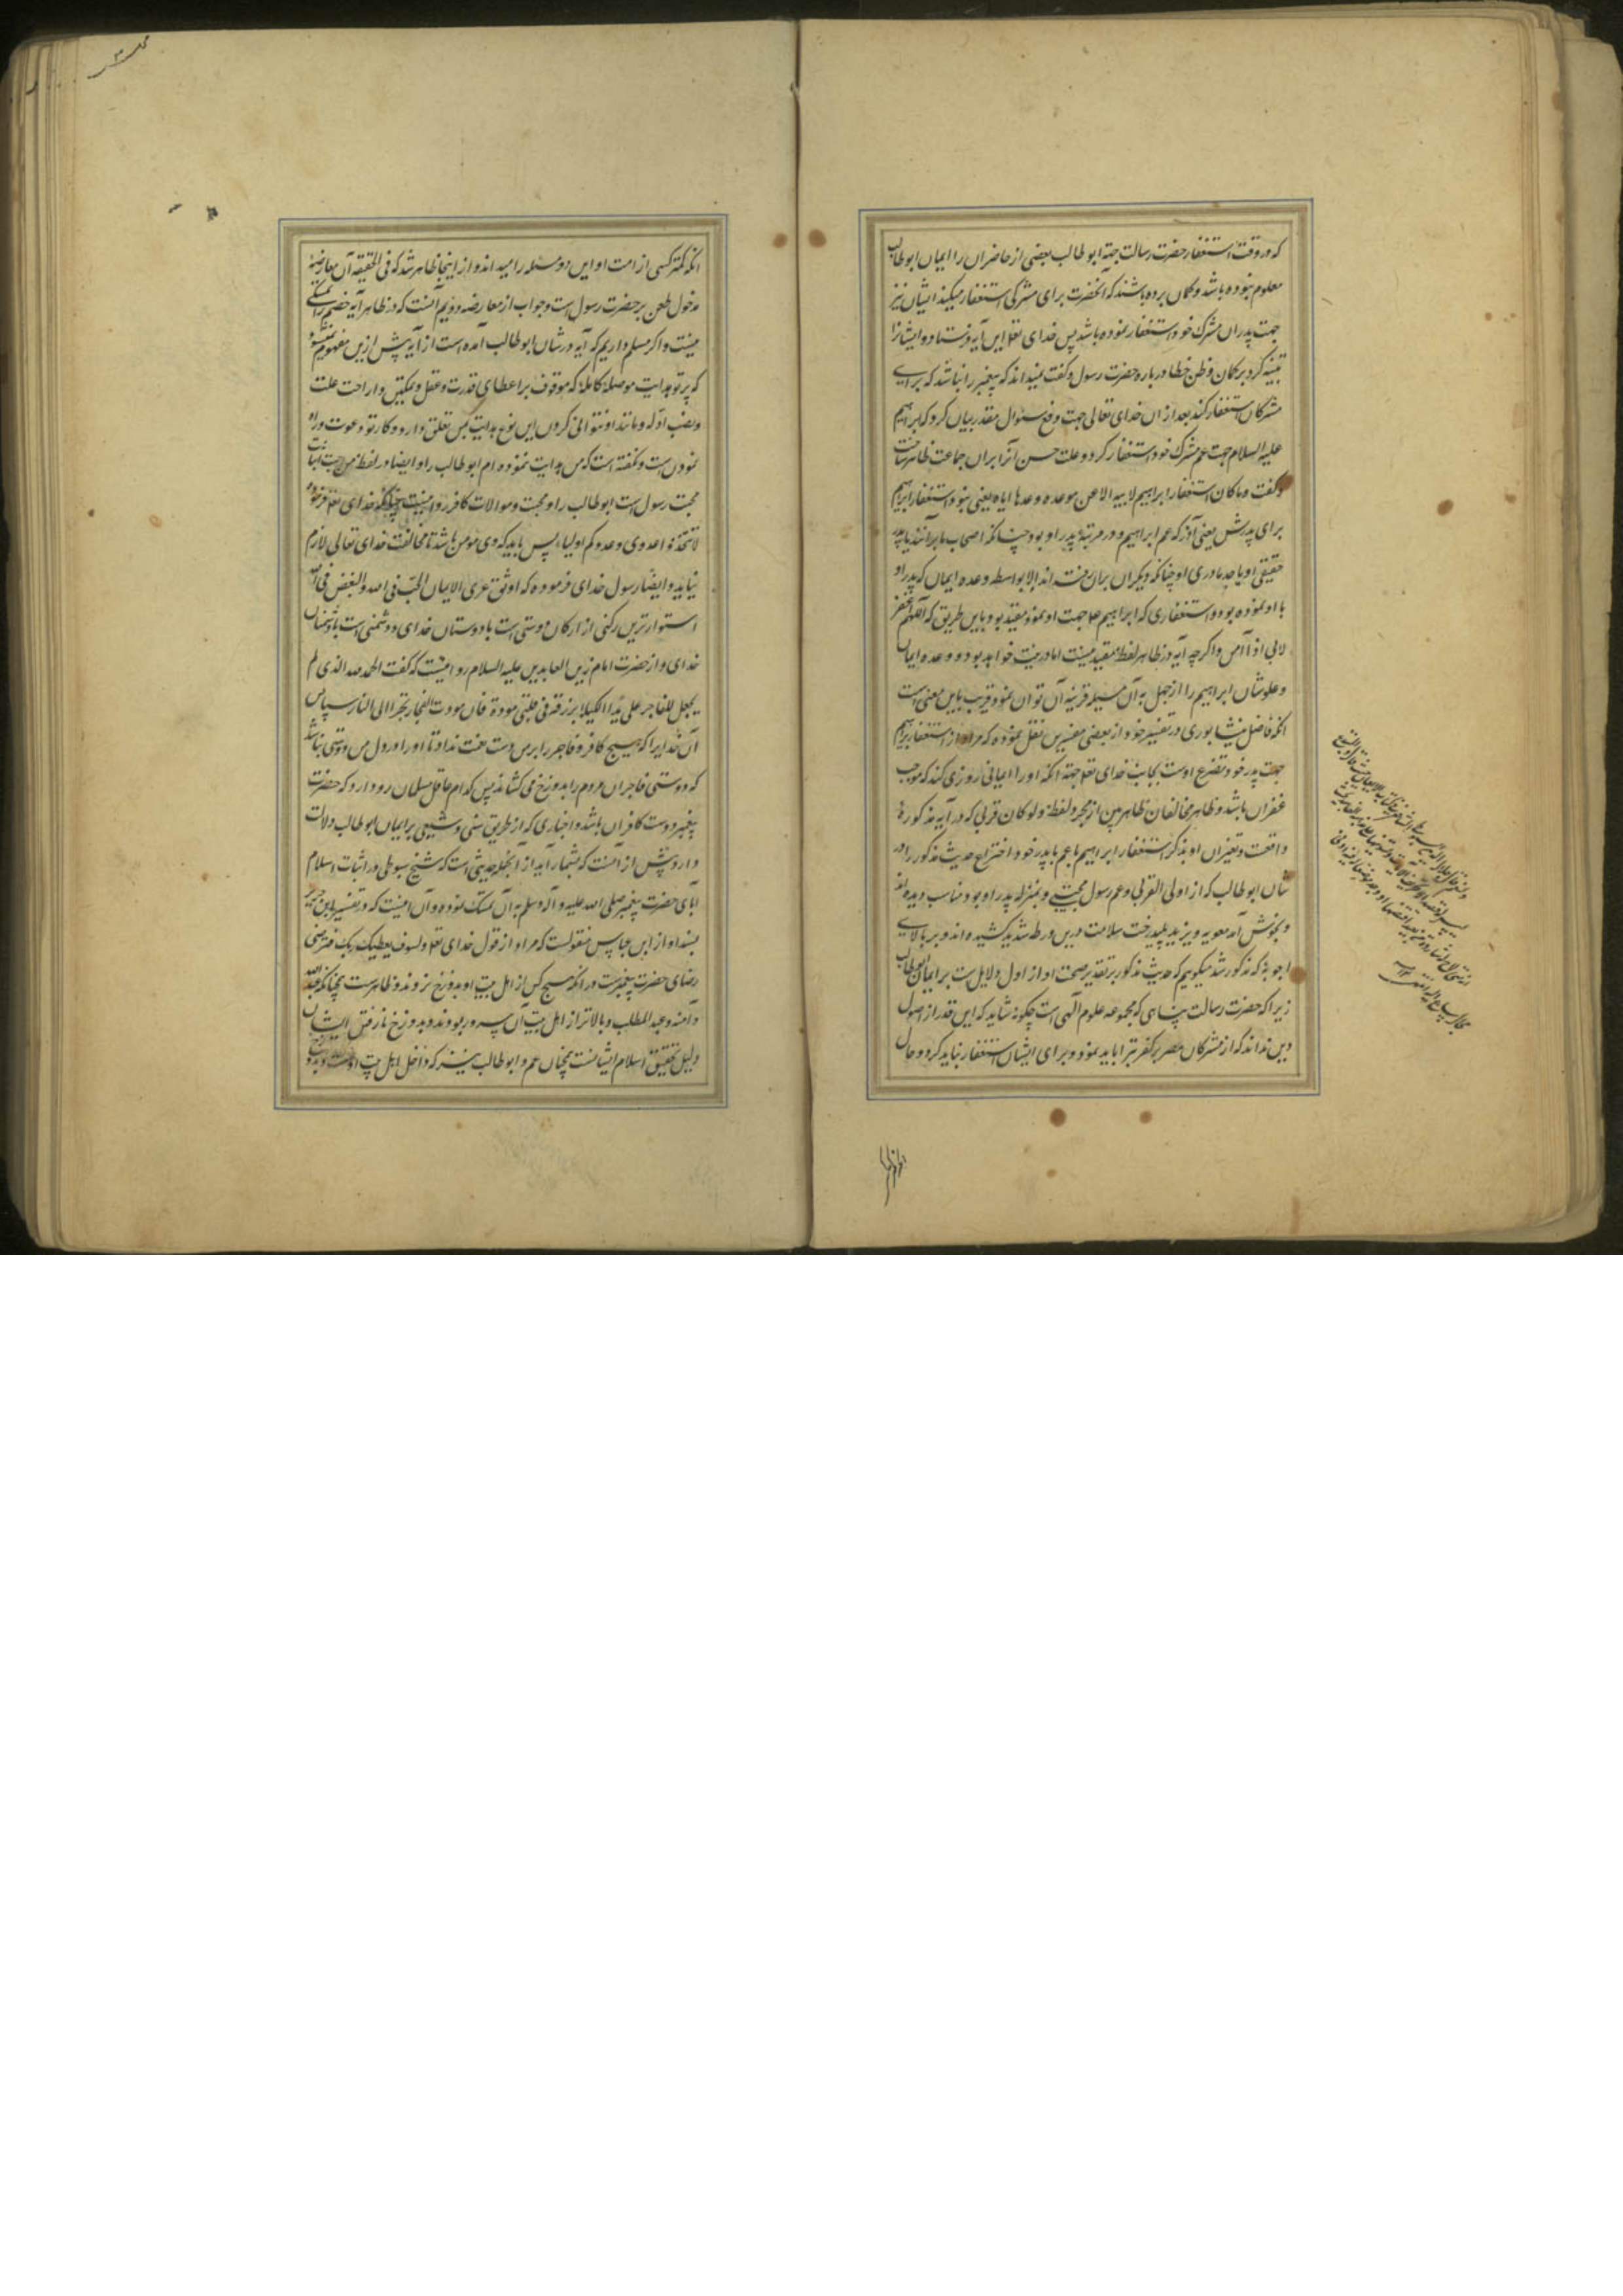 که در وقت استغفار حضرت رسالت جهة ابو طالب بعضی از حاضران را ایمان ابوطالب
معلوم نبوده باشد و گمان برده باشند که آنحضرت برای مشرکی استغفار میکند ایشان نیز
جهت پدران مشرک خود استغفار نموده باشد پس خدای تعا این آیه فرستاد و ایشانرا
تنبیه کرد بر گمان و ظن خطا درباره حضرت رسول و گفت میبداند که پیغمبر را نباشد که برای
مشرکان استغفار کند بعد از ان خدای تعالی جهت دفع سئوال مقدر بیان کرد که ابراهیم
علیه السلام جهت عم مشرک خود استغفار کرد و علت حسن آنرا بران جماعت ظاهر ساخت
و گفت وما کان استغفار ابراهیم لابیه الا عن موعده وعدها ایاه یعنی نبود استغفار ابراهیم
برای پدرش یعنی آذر که عم ابراهیم و در مرتبهٔ پدر او بود چنانکه اصحاب ما برآنند یا پدر
حقیقی او یا جد مادری او چنانکه دیگران بران رفته اند الا بواسطه وعده ایمان که پدر او
با او نموده بود و استغفاری که ابراهیم ع جهت او نمود مقید بود باین طریق که اللهم اغفر
لابی اذا آمن و اگرچه آیه در ظاهر لفظ مقید نیست اما در نیت خواهد بود و وعده ایمان
و علو شان ابراهیم را از جهل به آن مسیله قرینه آن توان نمود و قریب باین معنی است
انکه فاضل نیشابوری در تفسیر خود از بعضی مفسرین نقل نموده که مراد از استغفار ابراهیم
جهت پدر خود تضرع اوست بجانب خدای تعا جهة انکه او را ایمانی روزی کند که موجب
غفران باشد و ظاهر مخالفان ظاهر بین از مجرد لفظ ولو کان قربی که در آیه مذکوره
واقعت و تغیر ان او بذکر استغفار ابراهیم ع بعم یا پدر خود اختراع حدیث مذکور را در
شان ابوطالب که از اولی القربی و عم رسول مجتبی و بمنزله پدر او بود مناسب دیده اند
و بخوش آمد معویه و یزید پلید رخت سلامت درین ورطه شدید کشیده اند و بر بالای
اجوبه که مذکور شد میگوییم که حدیث مذکور بر تقدیر صحت او از اول دلایل ست بر ایمان ابوطالب
زیرا که حضرت رسالت پناهی که مجموعه علوم الهی است چگونه شاید که این قدر از اصول
دین نداند که از مشرکان مصر بر کفر تبرا باید نمود و برای ایشان استغفار نباید کرد و حال
انکه کمتر کسی از امت او این دو مسئله را میداند و از اینجا ظاهر شد که فی الحقیقه آن معارضه
مدخول طعن بر حضرت رسول است و جواب از معارضه دویم آنست که در ظاهر آیه خصم را تمسکی
نیست و اگر مسلم داریم که آیه در شان ابوطالب آمده است از آیه پیش ازین مفهوم نمیشود
که پرتو هدایت موصله کامله که موقوف بر اعطای قدرت و عقل و تمکین و ازاحت علت
و نصب ادله و مانند او نتوانی کردن این نوع هدایت بمن تعلق دارد و کار تو دعوت و راه
نمودن است و نگفته است که من هدایت ننموده ام ابوطالب را و ایضا در لفظ من احببت اثبات
محبت رسول است ابوطالب را و محبت و موالات کافر روا نیست چنانکه خدای تعا فرموده
لا تتخذوا عدوی وعدوکم اولیاء پس باید که وی مومن باشد تا مخالفت خدای تعالی لازم
نیاید و ایضا رسول خدای فرموده که اوثق عری الایمان الحب فی الله والبغض فی الله
استوارترین رکنی از ارکان دوستی است با دوستان خدای و دشمنی است با دشمنان
خدای و از حضرت امام زین العابدین علیه السلام روایتست که گفت الحمد لله الذی لم
یجعل للفاجر علی یدا لکیلا یرزقه فی قلبی مودة فان مودت الفجار تجر الی النار سپاس
آن خدایرا که هیچ کافر و فاجر را بر من دست نعمت نداد تا او را در دل من دوستی نباشد
که دوستی فاجران مردم را بدوزخ می کشاند پس کدام عاقل مسلمان روا دارد که حضرت
پیغمبر دوست کافران باشد و اخباری که از طریق سنی و شیعی بر ایمان ابوطالب دلالت
دارد بیش از آنست که بشمار آید از آنجمله حدیثی است که شیخ سیوطی در اثبات اسلام
آبای حضرت پیغمبر صلی الله علیه و آله و سلم به آن تمسک نموده و آن اینست که در تفسیر ابن جریر
بسند او از ابن عباس منقولست که مراد از قول خدای تعا ولسوف یعطیک ربک فترضی
رضای حضرت پیغمبرست در انکه هیچ کس از اهل بیت او بدوزخ نروند و ظاهرست همچنانکه عبدالله
و آمنه و عبد المطلب و بالاتر از اهل بیت آن سرور بودند و بدوزخ نا رفتن ایشان
دلیل تحقیق اسلام ایشانست همچنان عم او ابوطالب نیز که داخل اهل بیت اوست